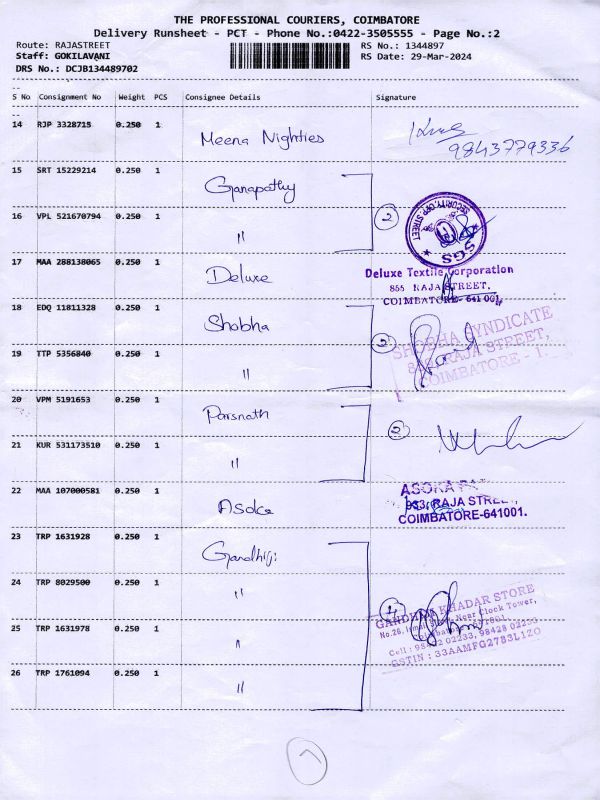 THE PROFESSIONAL COURIERS, COIMBATORE
Delivery Runsheet - PCT - Phone No.:0422-3505555 - Page No.:2
Route: RAJASTREET
Staff: GOKILAVANI
DRS No.: DCJB134489702
RS No.: 1344897
RS Date: 29-Mar-2024
S No Consignment No Weight PCS Consignee Details Signature
14 RJP 3328715 0.250 1 Meena Nighties
9843779336
15 SRT 15229214 0.250 1 Ganapathy
16 VPL 521670794 0.250 1 "
2
SECURITY, OPP. STREET
SGS
17 MAA 288138065 0.250 1 Deluxe
Deluxe Textile Corporation
855 RAJA STREET,
COIMBATORE- 641 001.
18 EDQ 11811328 0.250 1 Shobha
19 TTP 5356840 0.250 1 "
2
SHOBHA SYNDICATE
RAJA STREET,
COIMBATORE - 1.
20 VPM 5191653 0.250 1 Parsnath
21 KUR 531173510 0.250 1 "
2
22 MAA 107000581 0.250 1 Asoka
ASOKA
933, RAJA STREET,
COIMBATORE-641001.
23 TRP 1631928 0.250 1 Gandhiji
24 TRP 8029500 0.250 1 "
25 TRP 1631978 0.250 1 "
26 TRP 1761094 0.250 1 "
4
KHADAR STORE
No.26, Near Clock Tower,
Cell : 98422 02233, 98428 02233
GSTIN : 33AAMFG2783L1ZO